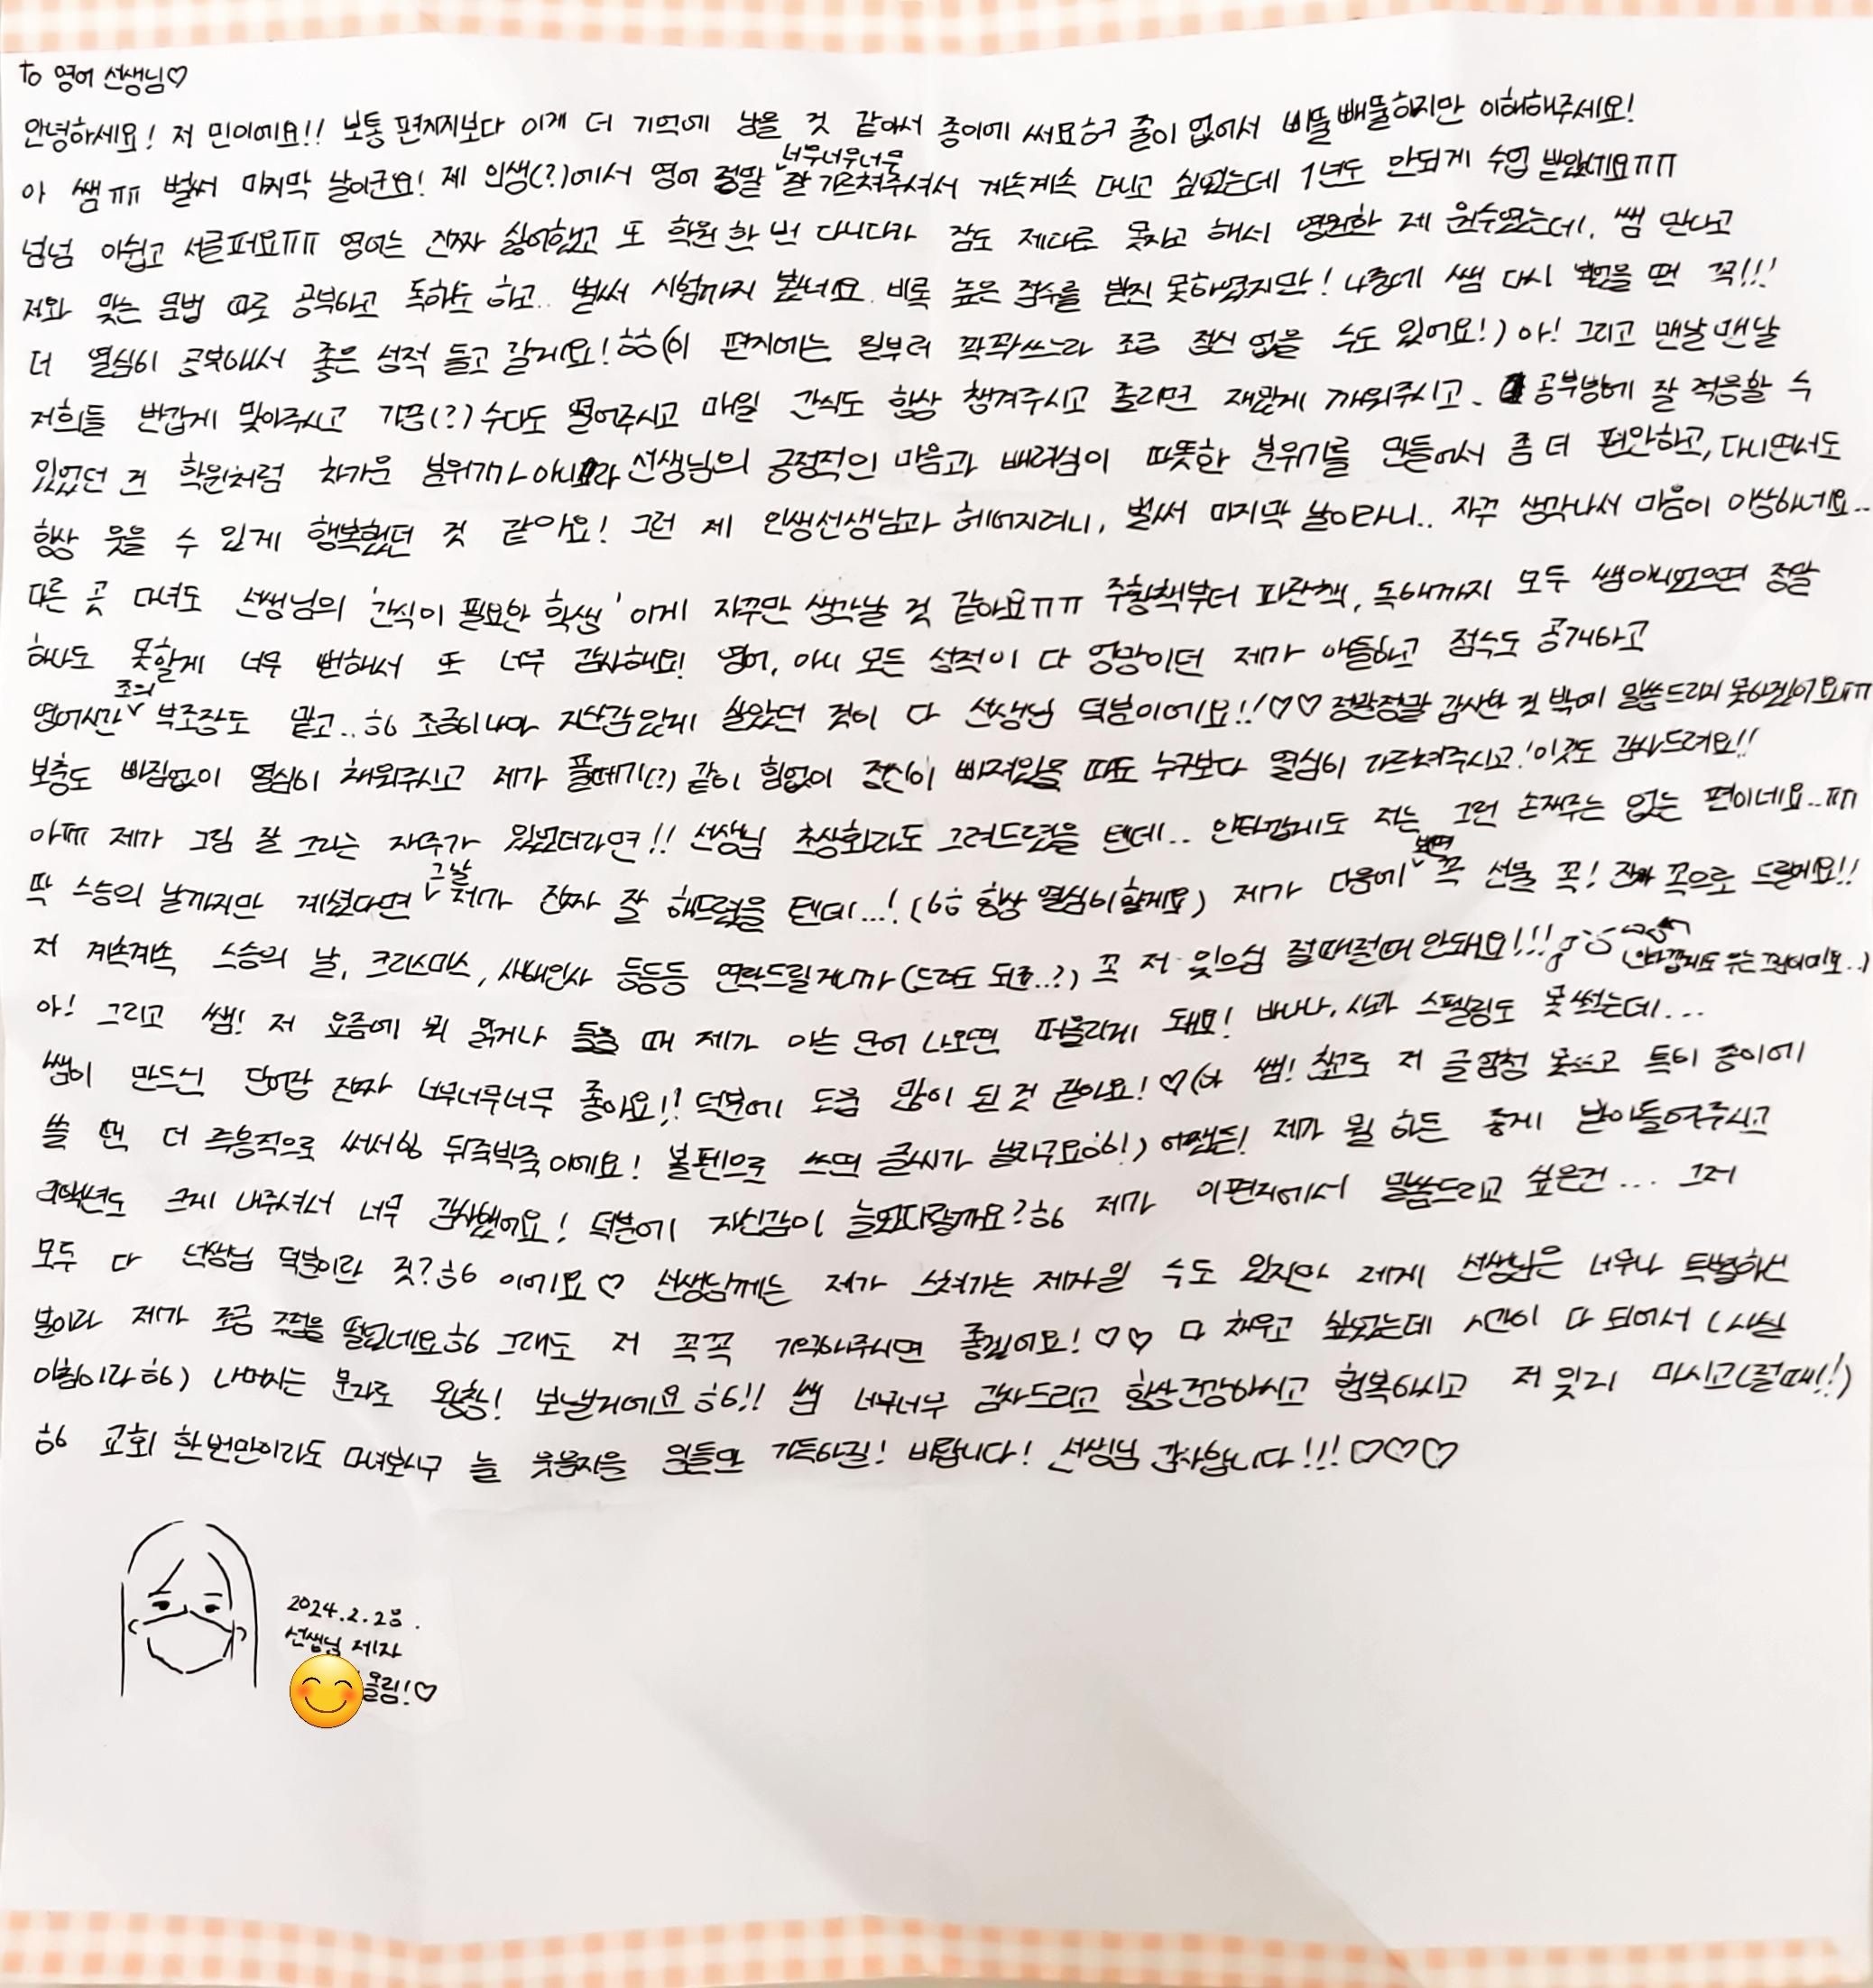 to 영어 선생님♡
안녕하세요! 저 민이에요!! 보통 편지지보다 이게 더 기억에 남을 것 같아서 종이에 써요허 줄이 없어서 삐뚤빼뚤하지만 이해해주세요!
아 쌤ㅠㅠ 벌써 마지막 날이군요! 제 인생(?)에서 영어 정말 너무너무너무 잘 가르쳐주셔서 계속계속 다니고 싶었는데 1년도 안되게 수업 받았네요ㅠㅠ
넘넘 아쉽고 서글퍼요ㅠㅠ 영어는 진짜 싫어했고 또 학원 한 번 다니다가 잠도 제대로 못자고 해서 영원한 제 원수였는데, 쌤 만나고
저와 맞는 문법 따로 공부하고 독해도 하고.. 벌써 시험까지 봤네요. 비록 높은 점수를 받진 못하였지만! 나중에 쌤 다시 뵀을 땐 꼭!!!
더 열심히 공부해서 좋은 성적 들고 갈게요!ㅎㅎ(이 편지에는 원부터 꽉꽉쓰느라 조금 정신 없을 수도 있어요!) 아! 그리고 맨날맨날
저희들 반갑게 맞아주시고 가끔(?) 수다도 떨어주시고 매일 간식도 항상 챙겨주시고 졸리면 재밌게 깨워주시고. 공부방에 잘 적응할 수
있었던 건 학원처럼 차가운 분위기가 아니라 선생님의 긍정적인 마음과 배려심이 따뜻한 분위기를 만들어서 좀 더 편안하고, 다니면서도
항상 웃을 수 있게 행복했던 것 같아요! 그런 제 인생선생님과 헤어지려니, 벌써 마지막 날이라니.. 자꾸 생각나서 마음이 이상하네요..
다른 곳 다녀도 선생님의 '간식이 필요한 학생' 이게 자꾸만 생각날 것 같아요ㅠㅠ 주황책부터 파란책, 독해까지 모두 쌤아니었으면 정말
하나도 못할게 너무 뻔해서 또 너무 감사해요! 영어, 아니 모든 성적이 다 엉망이던 제가 아들하고 점수도 공개하고
영어시간 조의 부조장도 맡고..ㅎㅎ 조금이나마 자신감있게 살았던 것이 다 선생님 덕분이에요!!♡♡ 정말정말 감사한 것 밖에 말씀드리지 못하겠어요ㅠㅠ
보충도 빠짐없이 열심히 채워주시고 제가 풀떼기(?) 같이 힘없이 정신이 빠져있을 때도 누구보다 열심히 가르쳐주시고! 이것도 감사드려요!!
아ㅠㅠ 제가 그림 잘 그리는 재주가 있었더라면!! 선생님 초상화라도 그려드렸을 텐데.. 안타깝게도 저는 그런 손재주는 없는 편이네요..ㅠㅠ
딱 스승의 날까지만 계셨다면 그날 제가 진짜 잘 해드렸을 텐데...! (ㅎㅎ 항상 열심히 할게요) 제가 다음에 뵈면 꼭 선물 꼭! 진짜 꼭으로 드릴게요!!
저 계속계속 스승의 날, 크리스마스, 새해인사 등등등 연락드릴거니까(드려도 되죠..?) 꼭 저 잊으심 절때절때 안돼요!!! (안타깝게도 우는 그림이에요..)
아! 그리고 쌤! 저 요즘에 뭐 읽거나 들을 때 제가 아는 단어 나오면 떠올리게 돼요! 바나나, 사과 스펠링도 못 썼는데...
쌤이 만드신 단어장 진짜 너무너무너무 좋아요!! 덕분에 도움 많이 된 것 같아요!♡(아 쌤! 참고로 저 글 엄청 못쓰고 특히 종이에
쓸 땐 더 즉흥적으로 써서 뒤죽박죽이에요! 볼펜으로 쓰면 글씨가 날라구요ㅎㅎ!) 어쨌든! 제가 뭘 하든 좋게 받아들여주시고
리액션도 크게 내주셔서 너무 감사했어요! 덕분에 자신감이 늘었다랄까요?ㅎㅎ 제가 이 편지에서 말씀드리고 싶은건... 그저
모두 다 선생님 덕분이란 것?ㅎㅎ 이에요♡ 선생님께는 제가 스쳐가는 제자일 수도 있지만 제게 선생님은 너무나 특별하신
분이라 제가 조금 주접을 떨었네요ㅎㅎ 그래도 저 꼭꼭 기억해주시면 좋겠어요!♡♡ 다 채우고 싶었는데 시간이 다 되어서 (사실
아침이라ㅎㅎ) 나머지는 문자로 왕창! 보낼거에요ㅎㅎ!! 쌤 너무너무 감사드리고 항상 건강하시고 행복하시고 저 잊지 마시고(절때!!)
ㅎㅎ 교회 한번만이라도 다녀보시구 늘 웃음지을 일들만 가득하길! 바랍니다! 선생님 감사합니다!!!♡♡♡
2024.2.28.
선생님 제자
올림!♡